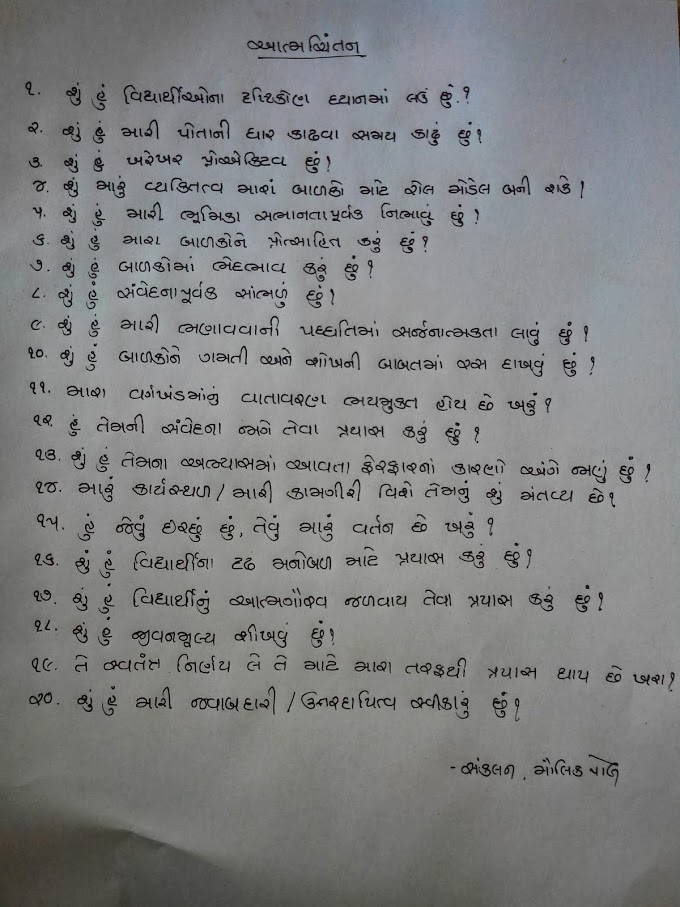 આત્મચિંતન
૧. શું હું વિદ્યાર્થીઓના દ્રષ્ટિકોણ ધ્યાનમાં લઉં છું.?
૨. શું હું મારી પોતાની ધાર કાઢવા સમય કાઢું છું?
૩. શું હું ખરેખર પ્રોએક્ટિવ છું?
૪. શું મારું વ્યક્તિત્વ મારાં બાળકો માટે રોલ મોડેલ બની શકે?
૫. શું હું મારી ભૂમિકા સભાનતાપૂર્વક નિભાવું છું?
૬. શું હું મારા બાળકોને પ્રોત્સાહિત કરું છું?
૭. શું હું બાળકોમાં ભેદભાવ કરું છું?
૮. શું હું સંવેદનાપૂર્વક સાંભળું છું?
૯. શું હું મારી ભણાવવાની પધ્ધતિમાં સર્જનાત્મકતા લાવું છું?
૧૦. શું હું બાળકોને ગમતી અને શોખની બાબતમાં રસ દાખવું છું?
૧૧. મારા વર્ગખંડમાંનું વાતાવરણ ભયમુક્ત હોય છે ખરું?
૧૨. હું તેમની સંવેદના જાગે તેવા પ્રયાસ કરું છું?
૧૩. શું હું તેમના અભ્યાસમાં આવતા ફેરફારનાં કારણો અંગે જાણું છું?
૧૪. મારું કાર્યસ્થળ / મારી કામગીરી વિશે તેમનું શું મંતવ્ય છે?
૧૫. હું જેવું ઇચ્છું છું, તેવું મારું વર્તન છે ખરું?
૧૬. શું હું વિદ્યાર્થીના દ્રઢ મનોબળ માટે પ્રયાસ કરું છું?
૧૭. શું હું વિદ્યાર્થીનું આત્મગૌરવ જળવાય તેવા પ્રયાસ કરું છું?
૧૮. શું હું જીવનમૂલ્ય શીખવું છું?
૧૯. તે સ્વતંત્ર નિર્ણય લે તે માટે મારા તરફથી પ્રયાસ થાય છે ખરા?
૨૦. શું હું મારી જવાબદારી / ઉત્તરદાયિત્વ સ્વીકારું છું?
- સંકલન, મૌલિક